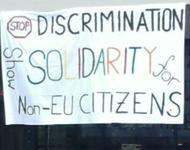 STOP DISCRIMINATION
Show SOLIDARITY for
Non-EU CITIZENS